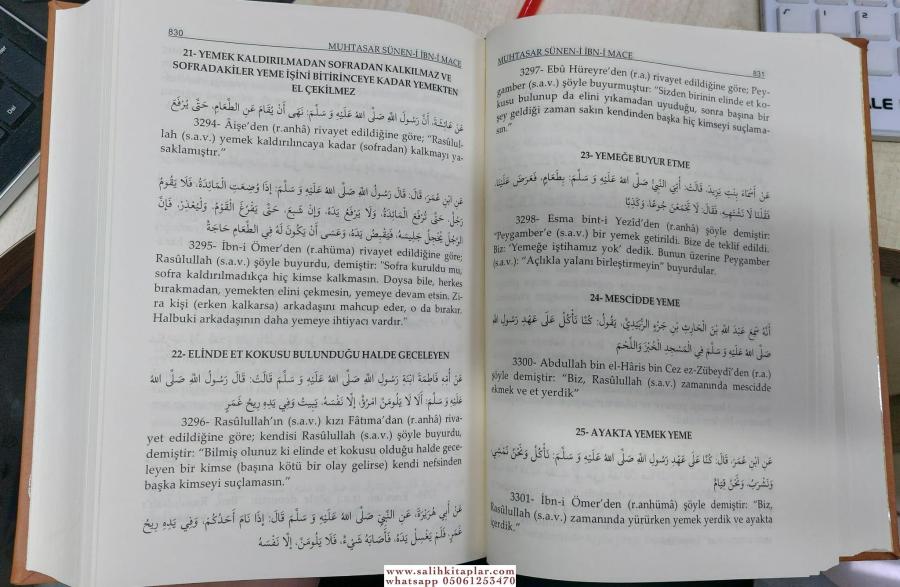 830
MUHTASAR SÜNEN-İ İBN-İ MACE
21- YEMEK KALDIRILMADAN SOFRADAN KALKILMAZ VE
SOFRADAKİLER YEME İŞİNİ BİTİRİNCEYE KADAR YEMEKTEN
EL ÇEKİLMEZ
عَنْ عَائِشَةَ، أَنَّ رَسُولَ اللهِ صَلَّى اللهُ عَلَيْهِ وَ سَلَّمَ: نَهَى أَنْ يُقَامَ عَنِ الطَّعَامِ، حَتَّى يُرْفَعَ
3294- Âişe’den (r.anhâ) rivayet edildiğine göre; “Rasûlul-
lah (s.a.v.) yemek kaldırılıncaya kadar (sofradan) kalkmayı ya-
saklamıştır.”
عَنِ ابْنِ عُمَرَ، قَالَ: قَالَ رَسُولُ اللهِ صَلَّى اللهُ عَلَيْهِ وَ سَلَّمَ: إِذَا وُضِعَتِ الْمَائِدَةُ، فَلَا يَقُومُ
رَجُلٌ، حَتَّى تُرْفَعَ الْمَائِدَةُ، وَلَا يَرْفَعُ يَدَهُ، وَإِنْ شَبِعَ، حَتَّى يَفْرُغَ الْقَوْمُ، وَلْيُعْذِرْ، فَإِنَّ
الرَّجُلَ يُخْجِلُ جَلِيسَهُ، فَيَقْبِضُ يَدَهُ، وَعَسَى أَنْ يَكُونَ لَهُ فِي الطَّعَامِ حَاجَةٌ
3295- İbn-i Ömer’den (r.ahüma) rivayet edildiğine göre;
Rasûlullah (s.a.v.) şöyle buyurdu, demiştir: “Sofra kuruldu mu,
sofra kaldırılmadıkça hiç kimse kalkmasın. Doysa bile, herkes
bırakmadan, yemekten elini çekmesin, yemeye devam etsin. Zi-
ra kişi (erken kalkarsa) arkadaşını mahcup eder, o da bırakır.
Halbuki arkadaşının daha yemeye ihtiyacı vardır.”
22- ELİNDE ET KOKUSU BULUNDUĞU HALDE GECELEYEN
عَنْ أُمِّهِ فَاطِمَةَ ابْنَةِ رَسُولِ اللهِ صَلَّى اللهُ عَلَيْهِ وَ سَلَّمَ قَالَتْ: قَالَ رَسُولُ اللهِ صَلَّى اللهُ
عَلَيْهِ وَ سَلَّمَ: أَلَا لَا يَلُومَنَّ امْرُؤٌ، إِلَّا نَفْسَهُ، يَبِيتُ وَفِي يَدِهِ رِيحُ غَمَرٍ
3296- Rasûlullah’ın (s.a.v.) kızı Fâtıma’dan (r.anhâ) riva-
yet edildiğine göre; kendisi Rasûlullah (s.a.v.) şöyle buyurdu,
demiştir: “Bilmiş olunuz ki elinde et kokusu olduğu halde gece-
leyen bir kimse (başına kötü bir olay gelirse) kendi nefsinden
başka kimseyi suçlamasın.”
عَنْ أَبِي هُرَيْرَةَ، عَنِ النَّبِيِّ صَلَّى اللهُ عَلَيْهِ وَ سَلَّمَ قَالَ: إِذَا نَامَ أَحَدُكُمْ، وَفِي يَدِهِ رِيحُ
غَمَرٍ، فَلَمْ يَغْسِلْ يَدَهُ، فَأَصَابَهُ شَيْءٌ، فَلَا يَلُومَنَّ، إِلَّا نَفْسَهُ
MUHTASAR SÜNEN-İ İBN-İ MACE
831
3297- Ebû Hüreyre’den (r.a.) rivayet edildiğine göre; Pey-
gamber (s.a.v.) şöyle buyurmuştur: “Sizden birinin elinde et ko-
kusu bulunup da elini yıkamadan uyuduğu, sonra başına bir
şey geldiği zaman sakın kendinden başka hiç kimseyi suçlama-
sın.”
23- YEMEĞE BUYUR ETME
عَنْ أَسْمَاءَ بِنْتِ يَزِيدَ، قَالَتْ: أُتِيَ النَّبِيُّ صَلَّى اللهُ عَلَيْهِ وَ سَلَّمَ: بِطَعَامٍ، فَعَرَضَ عَلَيْنَا،
فَقُلْنَا لَا نَشْتَهِيهِ، فَقَالَ: لَا تَجْمَعْنَ جُوعًا، وَكَذِبًا
3298- Esma bint-i Yezîd’den (r.anhâ) şöyle demiştir:
“Peygamber’e (s.a.v.) bir yemek getirildi. Bize de teklif edildi.
Biz: ‘Yemeğe iştihamız yok’ dedik. Bunun üzerine Peygamber
(s.a.v.): “Açlıkla yalanı birleştirmeyin” buyurdular.
24- MESCİDDE YEME
أَنَّهُ سَمِعَ عَبْدَ اللهِ بْنَ الْحَارِثِ بْنِ جَزْءٍ الزُّبَيْدِيَّ، يَقُولُ: كُنَّا نَأْكُلُ عَلَى عَهْدِ رَسُولِ اللهِ
صَلَّى اللهُ عَلَيْهِ وَ سَلَّمَ فِي الْمَسْجِدِ الْخُبْزَ وَاللَّحْمَ
3300- Abdullah bin el-Hâris bin Cez ez-Zübeydî’den (r.a.)
şöyle demiştir: “Biz, Rasûlullah (s.a.v.) zamanında mescidde
ekmek ve et yerdik”
25- AYAKTA YEMEK YEME
عَنِ ابْنِ عُمَرَ، قَالَ: كُنَّا عَلَى عَهْدِ رَسُولِ اللهِ صَلَّى اللهُ عَلَيْهِ وَ سَلَّمَ: نَأْكُلُ وَنَحْنُ نَمْشِي
وَنَشْرَبُ، وَنَحْنُ قِيَامٌ
3301- İbn-i Ömer’den (r.anhümâ) şöyle demiştir: “Biz,
Rasûlullah (s.a.v.) zamanında yürürken yemek yerdik ve ayakta
içerdik.”
www.salihkitaplar.com
whatsapp 05061253470